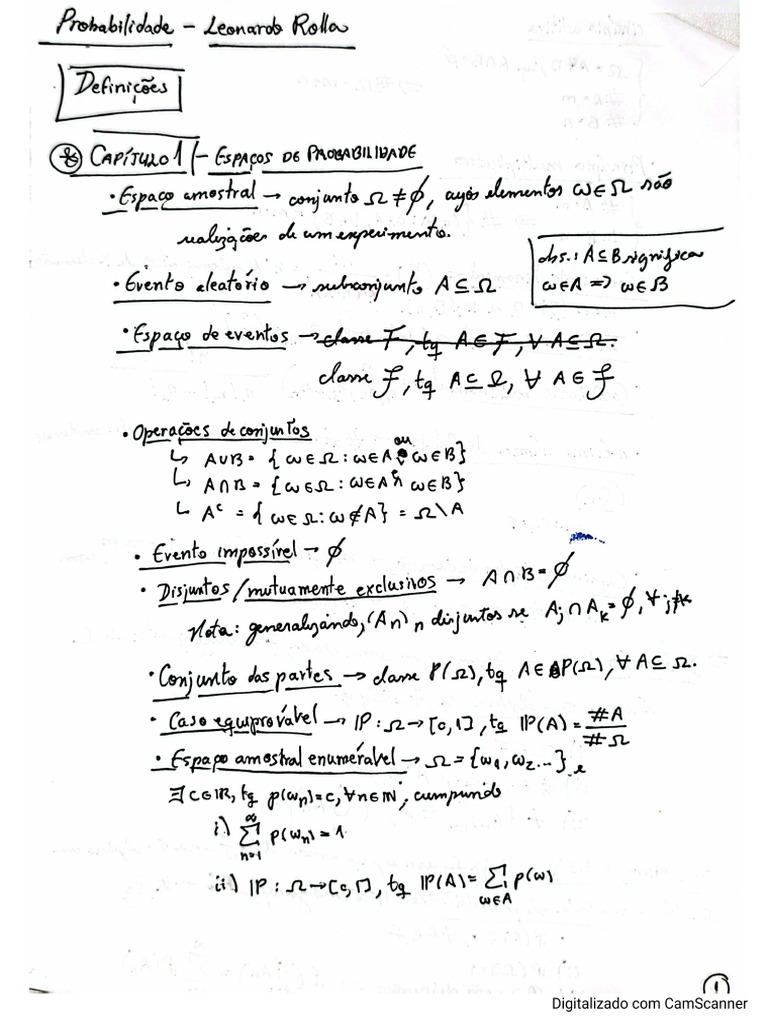 Probabilidade - Leonardo Rolla
Definições
CAPÍTULO 1 - ESPAÇOS DE PROBABILIDADE
• Espaço amostral → conjunto Ω ≠ ∅, cujos elementos ω ∈ Ω são
realizações de um experimento.
obs.: A ⊆ B significa
ω ∈ A ⇒ ω ∈ B
• Evento aleatório → subconjunto A ⊆ Ω
• Espaço de eventos → classe F, tq A ∈ F, ∀ A ⊆ Ω.
classe F, tq A ⊆ Ω, ∀ A ∈ F
• Operações de conjuntos
↳ A∪B = {ω ∈ Ω : ω ∈ A ou ω ∈ B}
↳ A∩B = {ω ∈ Ω : ω ∈ A e ω ∈ B}
↳ Aᶜ = {ω ∈ Ω : ω ∉ A} = Ω \ A
• Evento impossível → ∅
• Disjuntos / mutuamente exclusivos → A ∩ B = ∅
Nota: generalizando, (An)n disjuntos se Aj ∩ Ak = ∅, ∀ j≠k
• Conjunto das partes → classe P(Ω), tq A ∈ P(Ω), ∀ A ⊆ Ω.
• Caso equiprovável → P : Ω → [0,1], tq P(A) = #A / #Ω
• Espaço amostral enumerável → Ω = {ω1, ω2 ...} e
∃ C ∈ ℝ, tq p(ωn) = c, ∀ n ∈ ℕ, cumprindo
i) ∑_{n=1}^{∞} p(ωn) = 1
ii) P : Ω → [0,1], tq P(A) = ∑_{ω∈A} p(ω)
1
Digitalizado com CamScanner